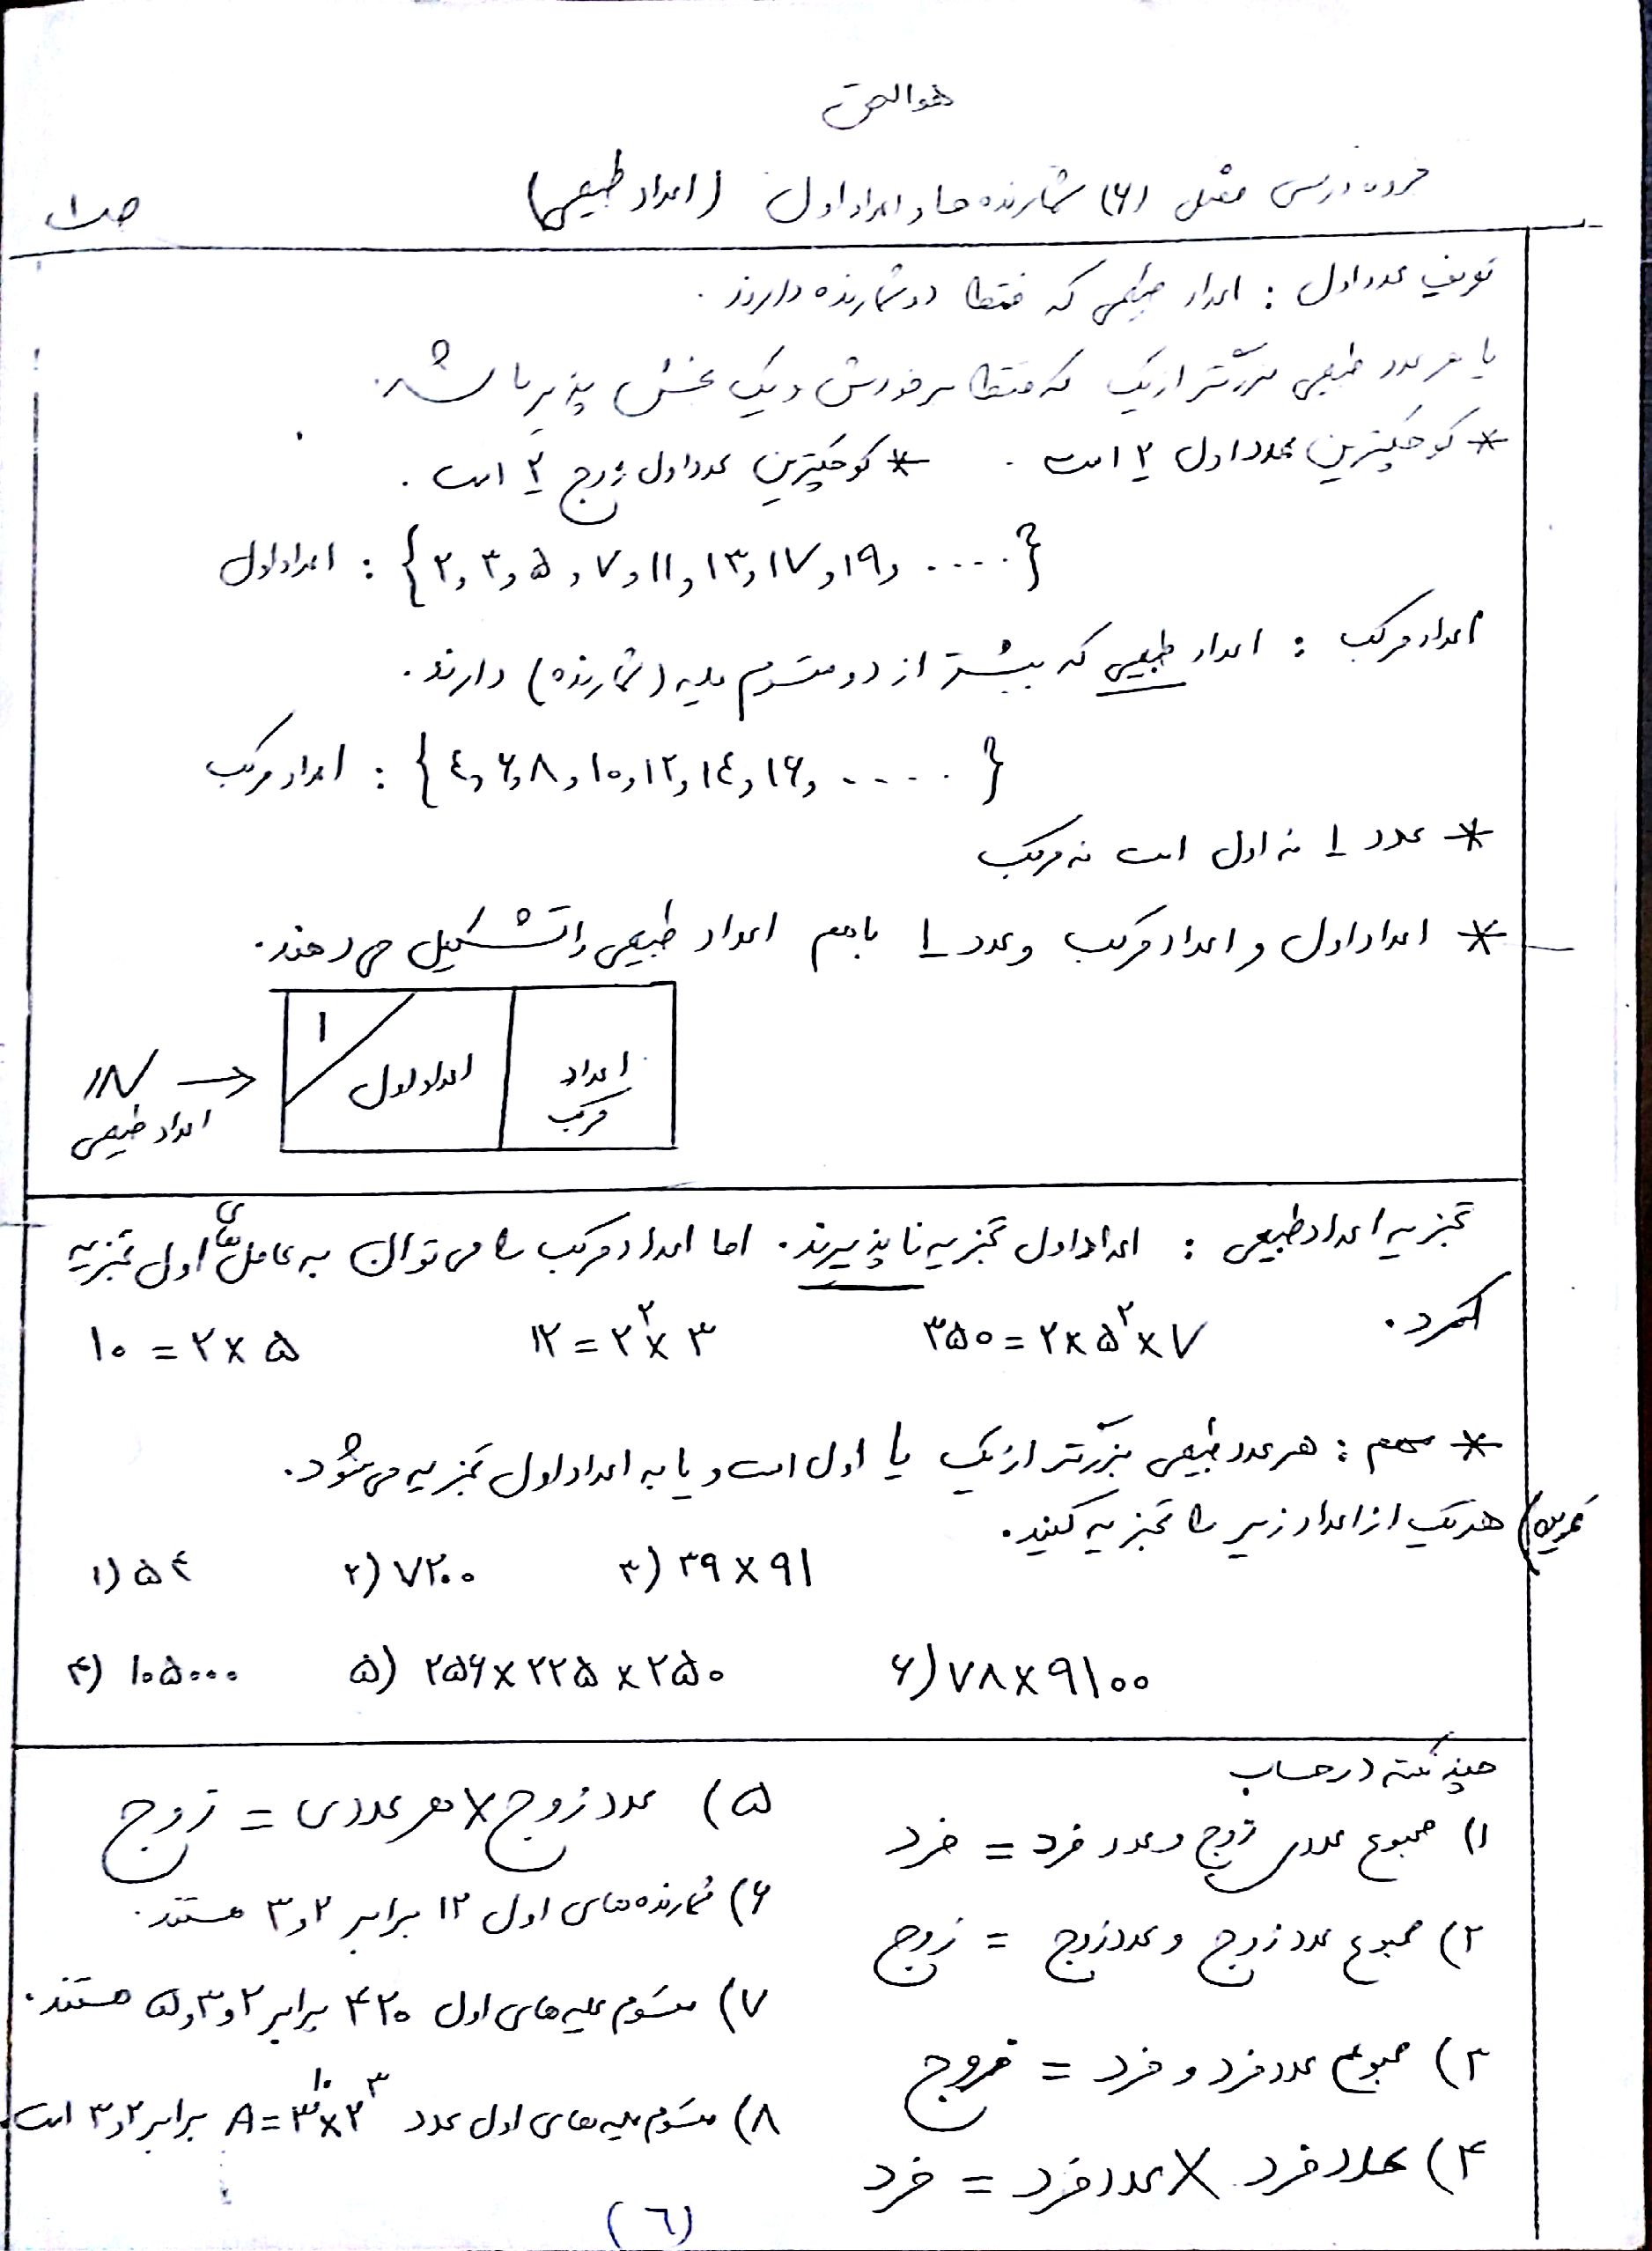 هوالحق
جزوه درسی فصل (۶) شمارنده ها و اعداد اول (اعداد طبیعی)
ص۱
تعریف عدد اول : اعداد طبیعی که فقط دو شمارنده دارند .
یا هر عدد طبیعی بزرگتر از یک که فقط بر خودش و یک بخش پذیر باشد.
* کوچکترین عدد اول ۲ است . * کوچکترین عدد اول زوج ۲ است .
اعداد اول : {۲, ۳, ۵, ۷, ۱۱, ۱۳, ۱۷, ۱۹, ....}
اعداد مرکب : اعداد طبیعی که بیشتر از دو مقسوم علیه (شمارنده) دارند .
اعداد مرکب : {٤, ۶, ۸, ۱۰, ۱۲, ۱٤, ۱۶, .....}
* عدد ۱ نه اول است نه مرکب
* اعداد اول و اعداد مرکب و عدد ۱ با هم اعداد طبیعی را تشکیل می دهند.
IN → ۱ اعداد اول اعداد مرکب
اعداد طبیعی
تجزیه اعداد طبیعی : اعداد اول تجزیه ناپذیرند . اما اعداد مرکب را می توان به عامل های اول تجزیه
کرد .
۱۰ = ۲ × ۵ ۱۲ = ۲² × ۳ ۳۵۰ = ۲ × ۵² × ۷
* مهم : هر عدد طبیعی بزرگتر از یک یا اول است و یا به اعداد اول تجزیه می شود .
تمرین) هر یک از اعداد زیر را تجزیه کنید .
۱) ۵۴ ۲) ۷۲۰۰ ۳) ۳۹ × ۹۱
۴) ۱۰۵۰۰۰ ۵) ۲۵۶ × ۲۲۵ × ۲۵۰ ۶) ۷۸ × ۹۱۰۰
چند نکته در حساب
۱) مجموع عددی زوج و عدد فرد = فرد
۲) مجموع عدد زوج و عدد زوج = زوج
۳) مجموع عدد فرد و فرد = زوج
۴) عدد فرد × عدد فرد = فرد
۵) عدد زوج × هر عددی = زوج
۶) شمارنده های اول ۱۲ برابر ۲ و ۳ هستند .
۷) مقسوم علیه های اول ۴۲۰ برابر ۲ و ۳ و ۵ هستند .
۸) مقسوم علیه های اول عدد A = ۳¹⁰ × ۲³ برابر ۲ و ۳ است.
(٦)